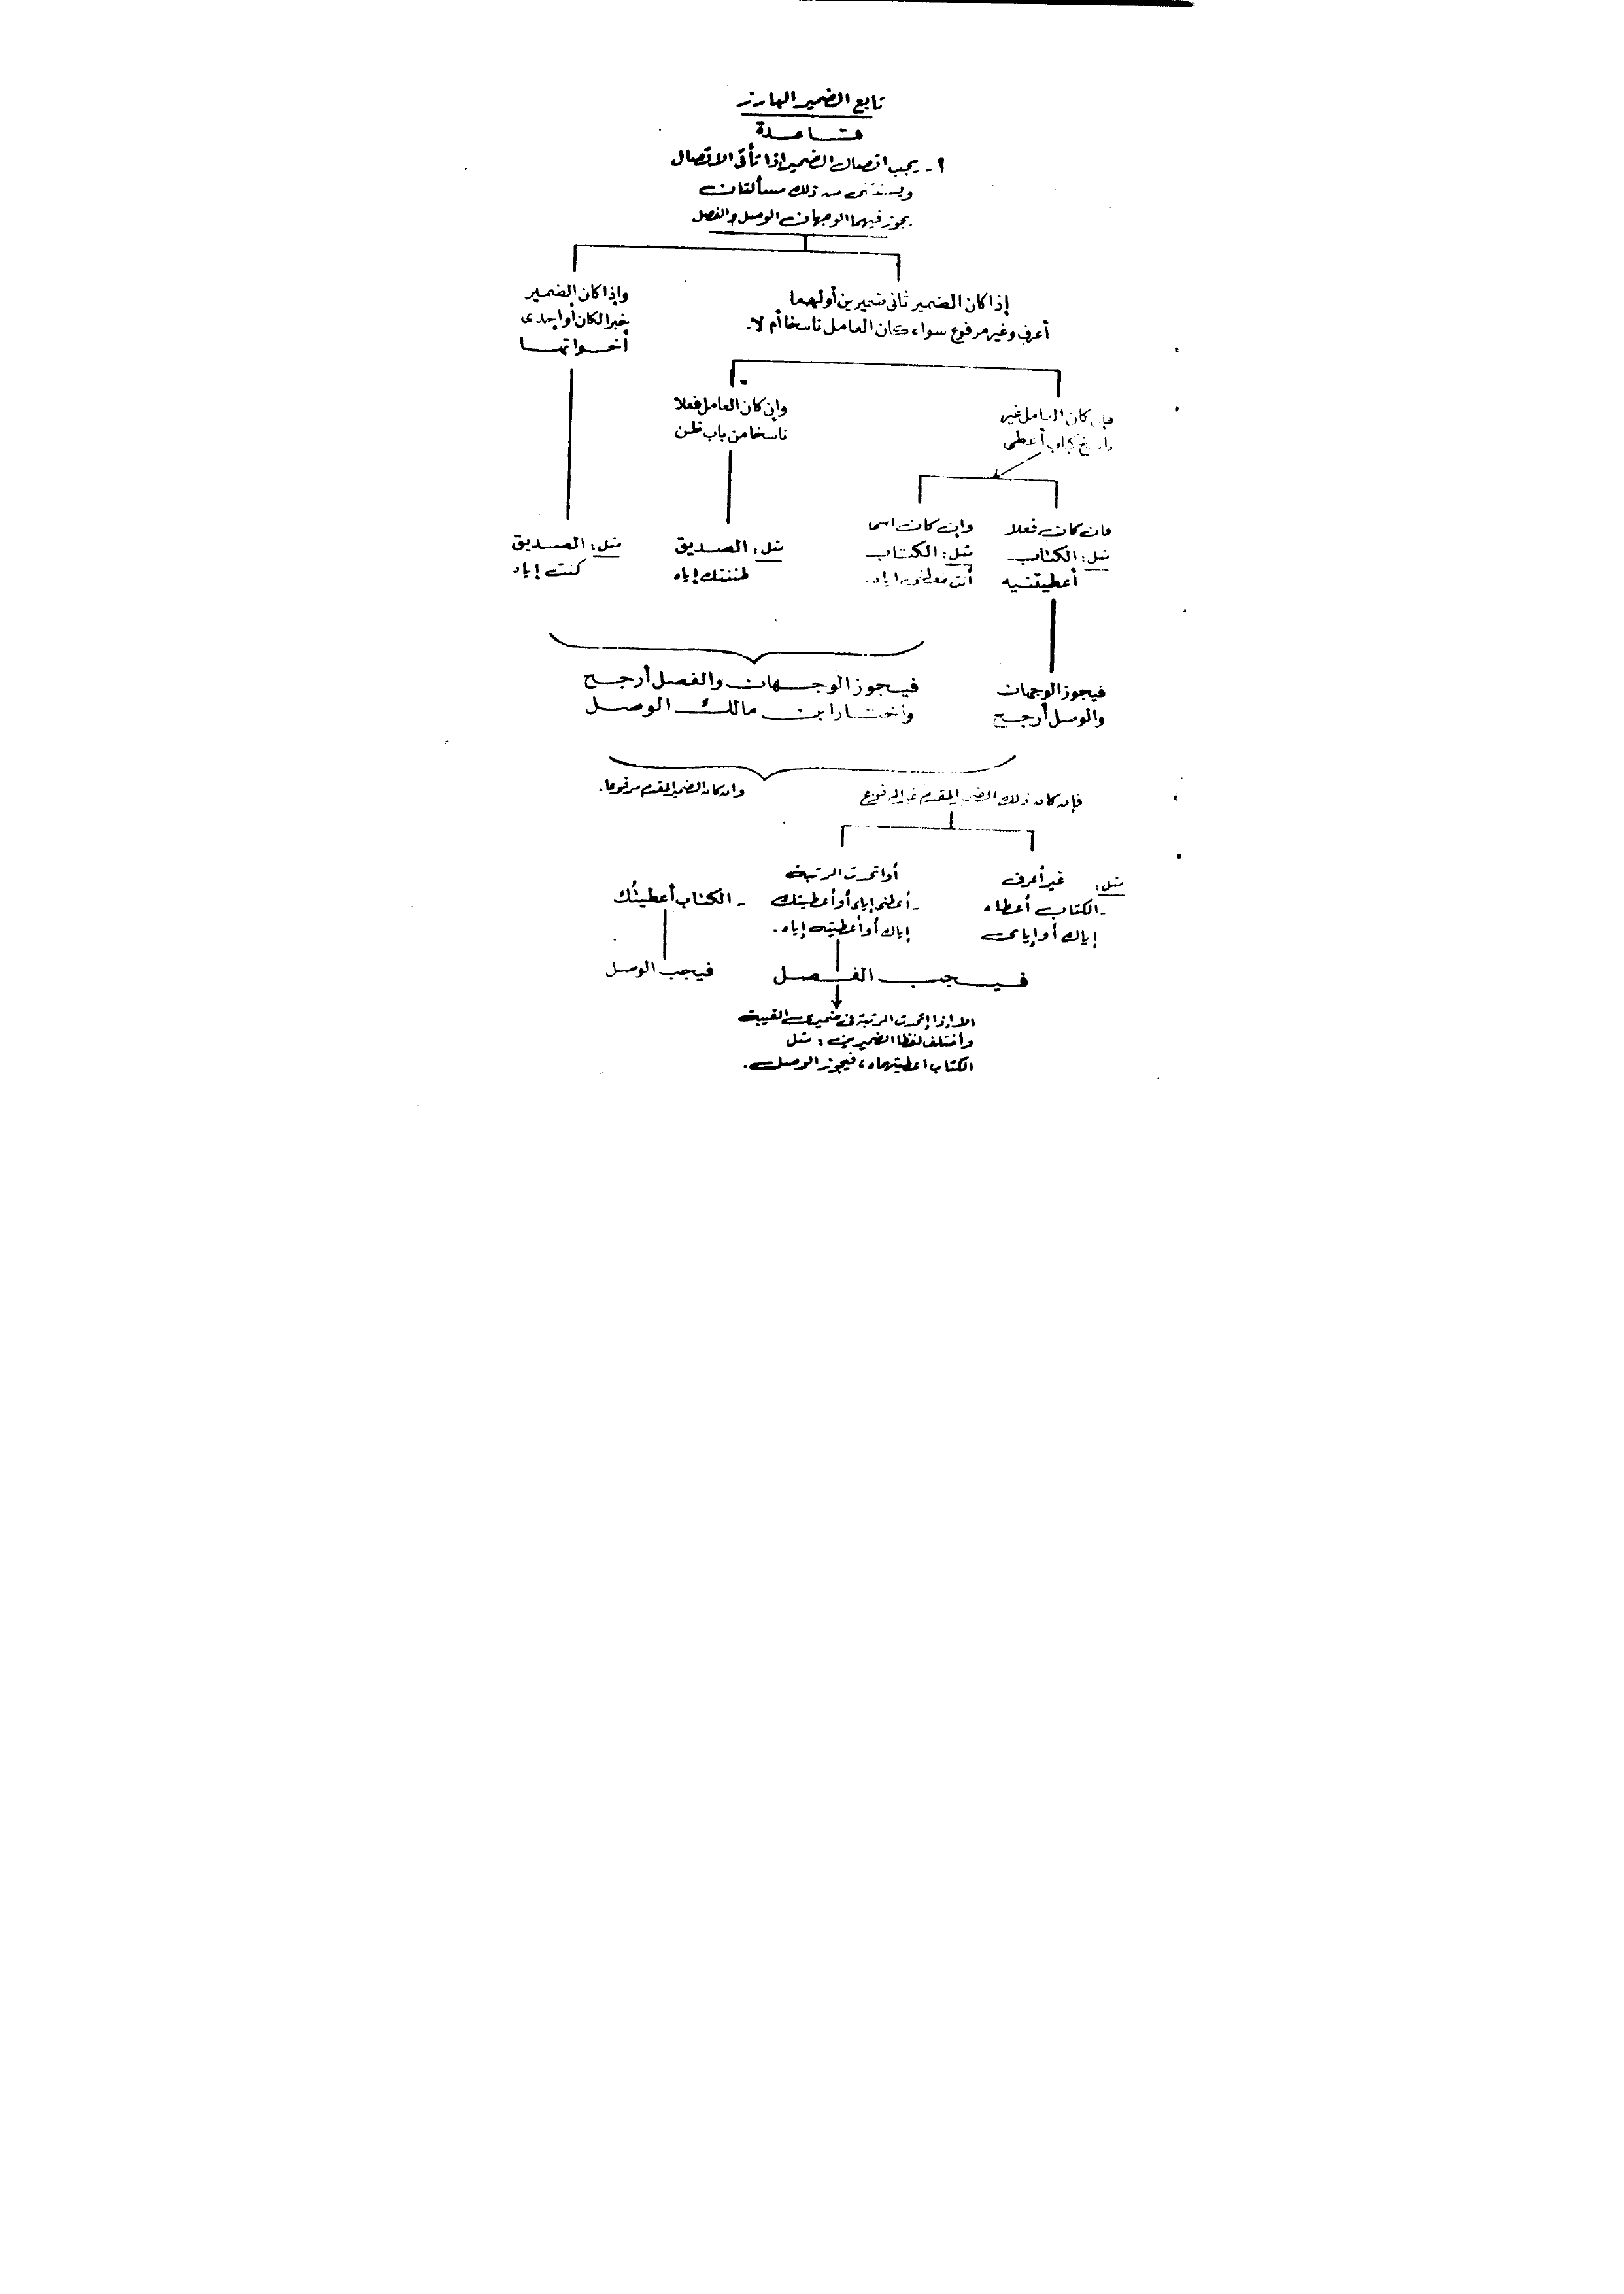 تابع الضمير البارز
قاعدة
٢ - يجب اتصال الضمير إذا تأتى الاتصال
ويستثنى من ذلك مسألتان
يجوز فيهما الوجهان الوصل والفصل
إذا كان الضمير ثاني ضميرين أولهما
أعرف وغير مرفوع سواء كان العامل ناسخا أم لا.
وإذا كان الضمير
خبرا لكان أو إحدى
أخواتها
فإن كان العامل غير
ناسخ كباب أعطى
وإن كان العامل فعلا
ناسخا من باب ظن
فان كان فعلا
مثل: الكتاب
أعطيتنيه
وإن كان اسما
مثل: الكتاب
أنت معطيه إياه.
مثل: الصديق
ظننتك إياه
مثل: الصديق
كنت إياه
فيجوز الوجهان
والوصل أرجح
فيجوز الوجهان والفصل أرجح
واختار ابن مالك الوصل
فإن كان ذلك الضمير المقدم غير المرفوع
وان كان الضمير المقدم مرفوعا.
مثل: غير أعرف
- الكتاب أعطاه
إياك أو إياى
أو اتحدت الرتبة
- أعطنى إياى أو أعطيتك
إياك أو أعطيته إياه.
- الكتاب أعطيتُك
فيجب الفصل
فيجب الوصل
الا إذا اتحدت الرتبة فى ضميرى الغيبة
واختلف لفظا الضميرين: مثل
الكتاب اعطيتهماه، فيجوز الوصل.